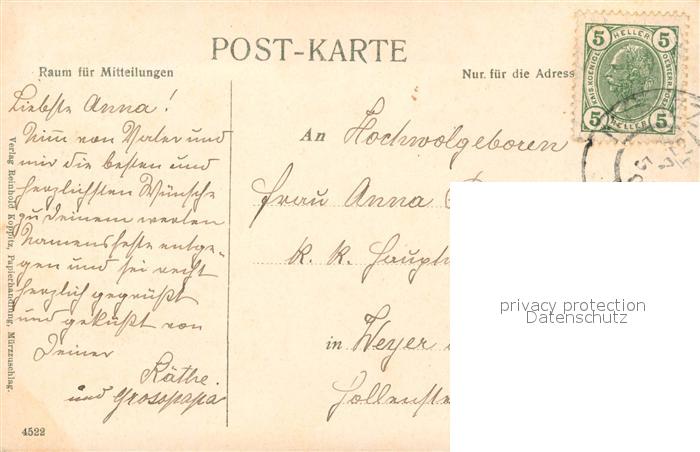 POST-KARTE
Raum für Mitteilungen
Nur für die Adress
5 HELLER 5
KAIS. KOENIGL. OESTERR. POST
5 HELLER 5
Liebste Anna!
Nimm von Vater und
mir die besten und
herzlichsten Wünsche
zu Deinem werten
Namensfeste entge-
gen und sei recht
herzlich gegrüßt
und geküßt von
Deiner
Käthe.
und Grosspapa
An Hochwolgeboren
Frau Anna
k. k. Haupt
in Weyer
Hollenste
Verlag Reinhold Koppitz, Papierhandlung, Mürzzuschlag.
4522
privacy protection
Datenschutz